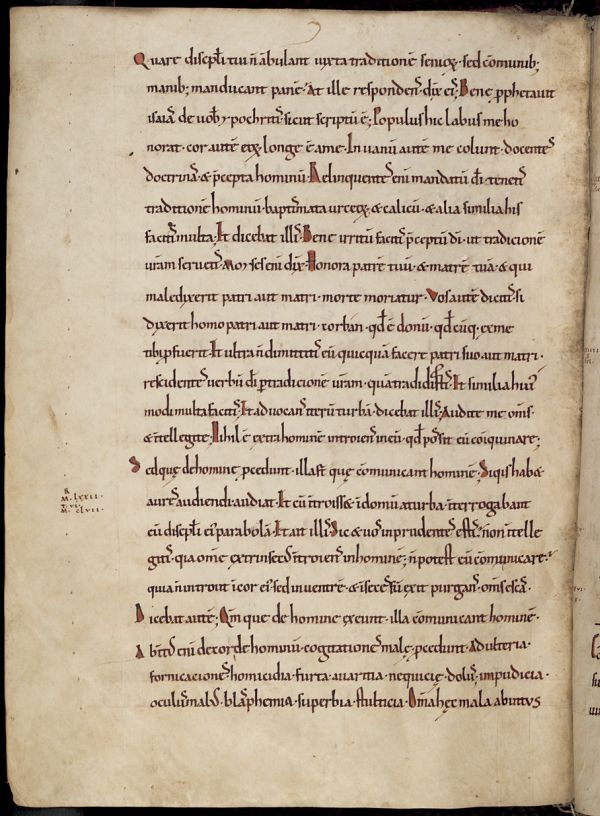 Quare discipłi tui ñ ãbulant iuxta traditionẽ senioꝝ · sed cõmunib;
manib; manducant panẽ · At ille respondens dix̃ eis; Bene ꝓphetauit
isaias de uobis ypochritis · sicut scriptũ ẽ; Populus hic labiis me ho
norat · cor autẽ eoꝝ longe ẽ a me · In uanũ autẽ me colunt · docentes
doctrinas & p̃cepta hominũ · Relinquentes eñi mandatũ dĩ · tenetis
traditionẽ hominũ · baptismata urceoꝝ · & calicũ · & alia similia his
facitis multa; Et dicebat illis; Bene irritũ facitis p̃ceptũ dĩ · ut tradicionẽ
urãm seruetis · Moyses eñi dix̃ · Honora patrẽ tuũ · & matrẽ tuã · & qui
maledixerit patri aut matri · morte moriatur · Vos autẽ dicitis · si
dixerit homo patri aut matri · corban · qđ ẽ donũ · qđcũq, ex me
tibi ꝓfuerit · Et ultra ñ dimittitis eũ quicquã facere patri suo aut matri ·
rescidentes uerbũ dĩ p tradicionẽ urãm · quã tradidistis · Et similia hui'
modi multa facitis · Et aduocans iterũ turbã · dicebat illis · Audite me oms̃ ·
& ĩtellegite · Nihil ẽ extra hominẽ introiens in eũ · qđ possit eũ coiquinare;
Sed quę de homine ꝓcedunt · illa st̃ quę cõmunicant hominẽ · Siquis habet
aures audiendi audiat · Et cũ ĩtroisset ĩ domũ a turba · ĩterrogabant
R
M · LXXII ·
M · CLVII ·
eũ discipłi ei' parabolã · Et ait illis · Sic & uos inprudentes estis · non ĩtelle
gitis · quia om̃e extrinsecus ĩtroiens in hominẽ · ñ potest eũ cõmunicare ·
quia ñ introit ĩ cor ei' · sed in uentrẽ · & ĩ secessũ exit purgans oms̃ escas ·
Dicebat autẽ; Qm̃ que de homine exeunt · illa cõmunicant hominẽ ·
Ab ĩtus eñi de corde hominũ · cogitationes malę ꝓcedunt · Adulteria ·
fornicaciones · homicidia · furta · auaritia · nequicię · dolus · impudicia ·
oculus malus · blasphemia · superbia · stulticia · Om̃a hęc mala ab intus